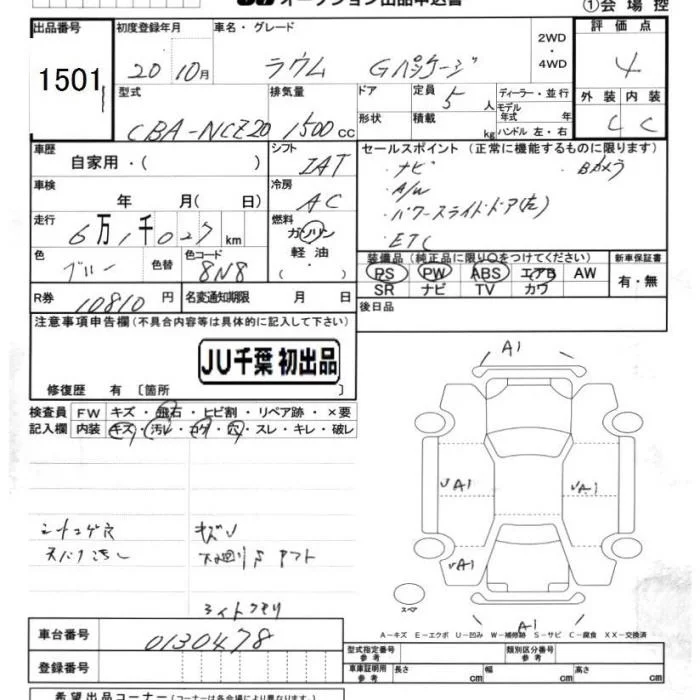 オークション出品申込書
①会場控
出品番号 初度登録年月 車名・グレード 2WD・4WD 評価点
1501 20 10月 ラウム Gパッケージ 4
型式 排気量 ドア 定員 5人 ディーラー・並行 外装 内装
CBA-NCZ20 1500cc 形状 積載 kg モデル年式 年 ハンドル 左・右 4 C
車歴 自家用・( ) シフト IAT セールスポイント (正常に機能するものに限ります)
・ナビ ・Bカメラ
車検 年 月( 日) 冷房 AC ・A/W
・パワースライドドア(左)
走行 6万1千027km 燃料 ガソリン 軽油 ( ・ ) ・ETC
色 ブルー 色替 色コード 8N8
装備品(純正品に限り○をつけてください) 新車保証書
PS PW ABS エアB AW 有・無
SR ナビ TV カワ
R券 10810円 名変通知期限 月 日 後日品
注意事項申告欄(不具合内容等は具体的に記入して下さい)
JU千葉 初出品
修復歴 有〔箇所 〕
検査員 FW キズ・飛石・ヒビ割・リペア跡・×要
記入欄 内装 キズ・汚レ・コゲ・穴・スレ・キレ・破レ
A1
UA1 UA1
シートコゲ穴 キズU
UA1
ライトクモリ
スペア
A1
A-キズ E-エクボ U-凹み W-補修跡 S-サビ C-腐食 XX-交換済
車台番号 0130478
型式指定番号 参考 類別区分番号 参考
登録番号 車庫証明用 参考 長さ cm 幅 cm 高さ cm
希望出品コーナー(コーナーは各会場により異なります)